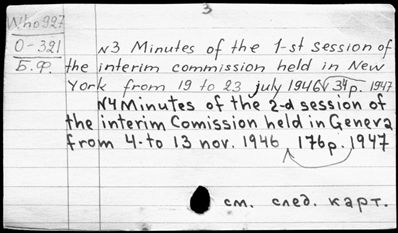 3
Who 927
О-321
Б.Ф.
N3 Minutes of the 1-st session of
the interim commission held in New
York from 19 to 23 july 1946 34p. 1947
N4 Minutes of the 2-d session of
the interim Comission held in Geneva
from 4. to 13 nov. 1946 176p. 1947
см. след. карт.